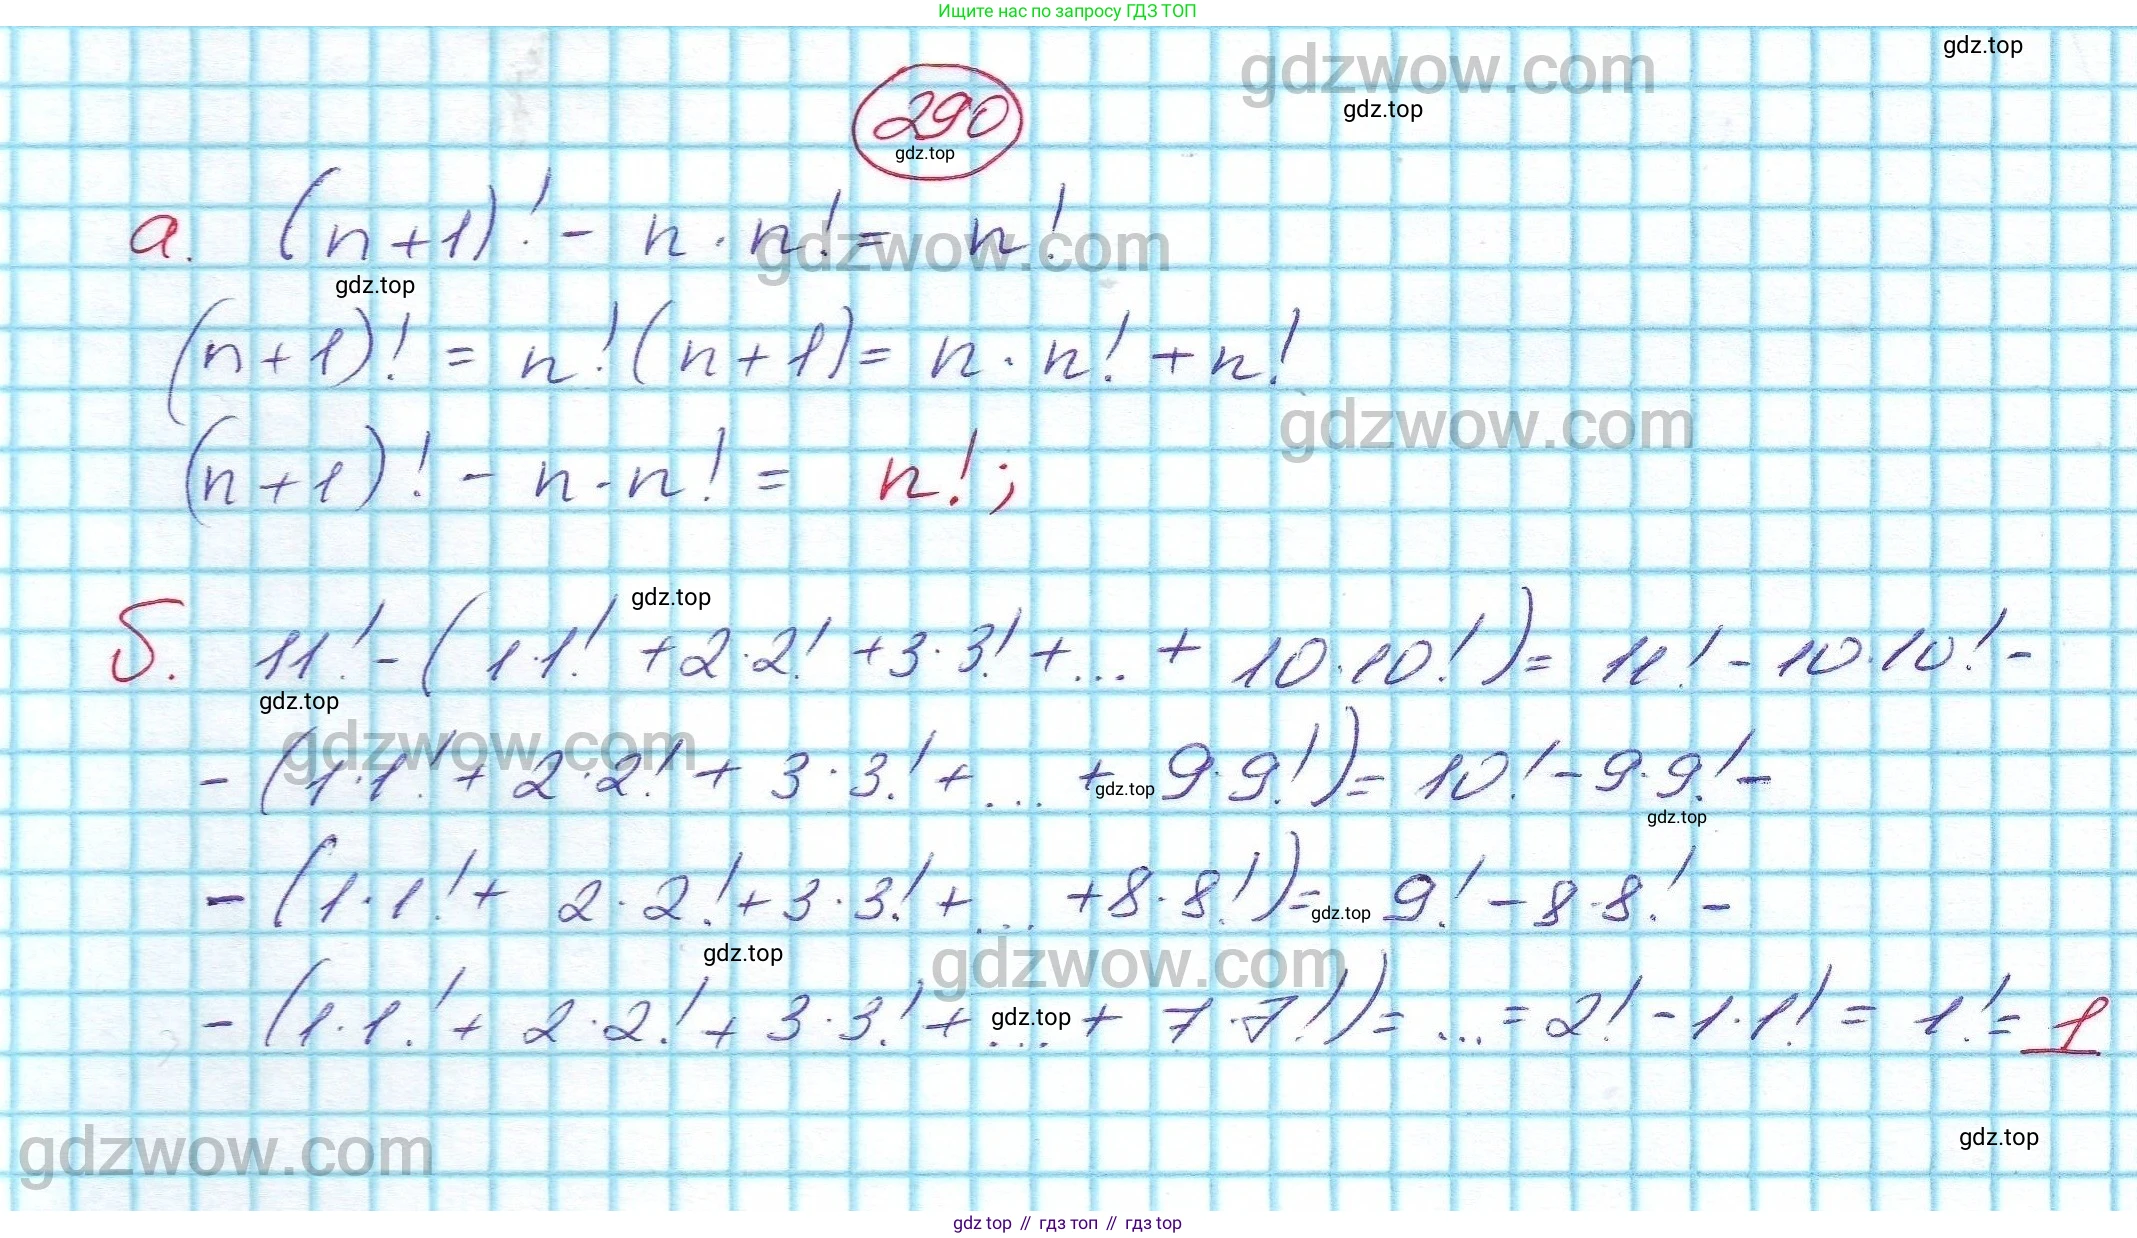 Ищите нас по запросу ГДЗ ТОП
gdz.top
gdzwow.com
gdz.top
290
gdz.top
а. (n+1)! - n · n! = n!
gdzwow.com
gdz.top
(n+1)! = n! (n+1) = n · n! + n!
gdzwow.com
(n+1)! - n · n! = n!;
gdz.top
б. 11! - (1·1! + 2·2! + 3·3! + ... + 10·10!) = 11! - 10·10! -
gdz.top
gdzwow.com
- (1·1! + 2·2! + 3·3! + ... + 9·9!) = 10! - 9·9! -
gdz.top
gdz.top
- (1·1! + 2·2! + 3·3! + ... + 8·8!) = 9! - 8·8! -
gdz.top
gdz.top
gdzwow.com
- (1·1! + 2·2! + 3·3! + ... + 7·7!) = ... = 2! - 1·1! = 1! = 1
gdz.top
gdzwow.com
gdz.top
gdz top // гдз топ // гдз top